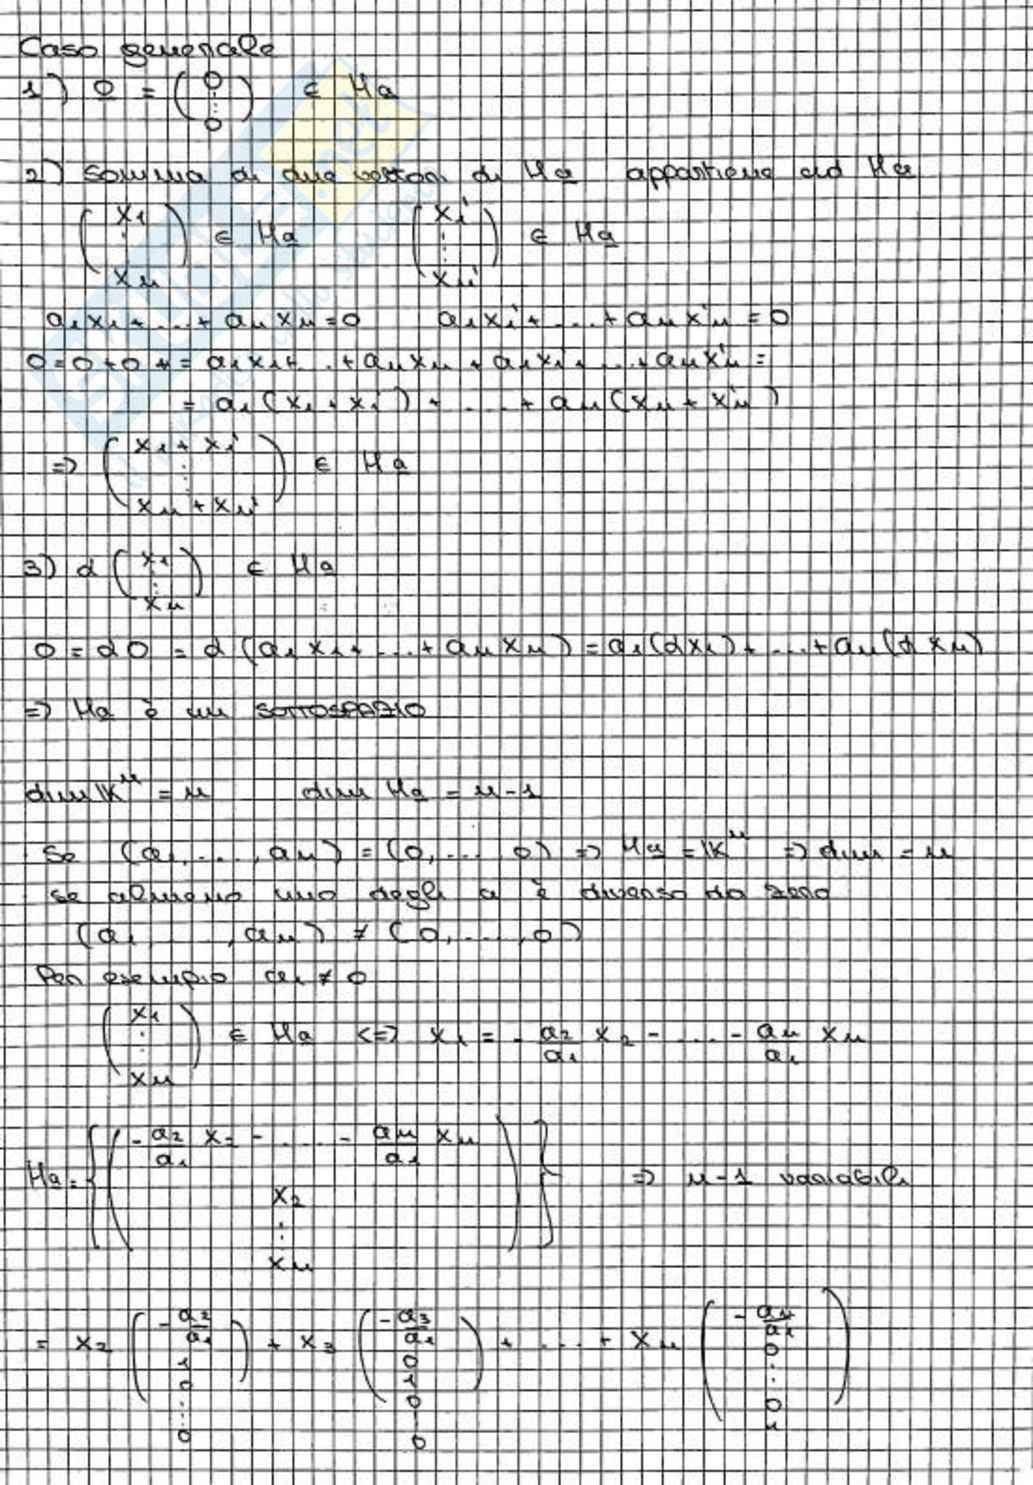 Caso generale
1) 0 = (0 ⋮ 0) ∈ Ha
2) Somma di due vettori di Ha appartiene ad Ha
(x1 ⋮ xn) ∈ Ha (x1' ⋮ xn') ∈ Ha
a1x1 + ... + anxn = 0 a1x1' + ... + anxn' = 0
0 = 0 + 0 = a1x1 + ... + anxn + a1x1' + ... + anxn' =
= a1(x1 + x1') + ... + an(xn + xn')
=> (x1 + x1' ⋮ xn + xn') ∈ Ha
3) α (x1 ⋮ xn) ∈ Ha
0 = α0 = α(a1x1 + ... + anxn) = a1(αx1) + ... + an(αxn)
=> Ha è un SOTTOSPAZIO
dim 𝕂ⁿ = n dim Ha = n-1
Se (a1, ..., an) = (0, ... 0) => Ha = 𝕂ⁿ => dim = n
se almeno uno degli a è diverso da zero
(a1, ..., an) ≠ (0, ..., 0)
Per esempio a1 ≠ 0
(x1 ⋮ xn) ∈ Ha <=> x1 = - a2/a1 x2 - ... - an/a1 xn
Ha = {(- a2/a1 x2 - ... - an/a1 xn x2 ⋮ xn)} => n-1 variabili
= x2 (- a2/a1 1 0 ⋮ 0) + x3 (- a3/a1 0 1 0 ⋮ 0) + ... + xn (- an/a1 0 ⋮ 0 1)